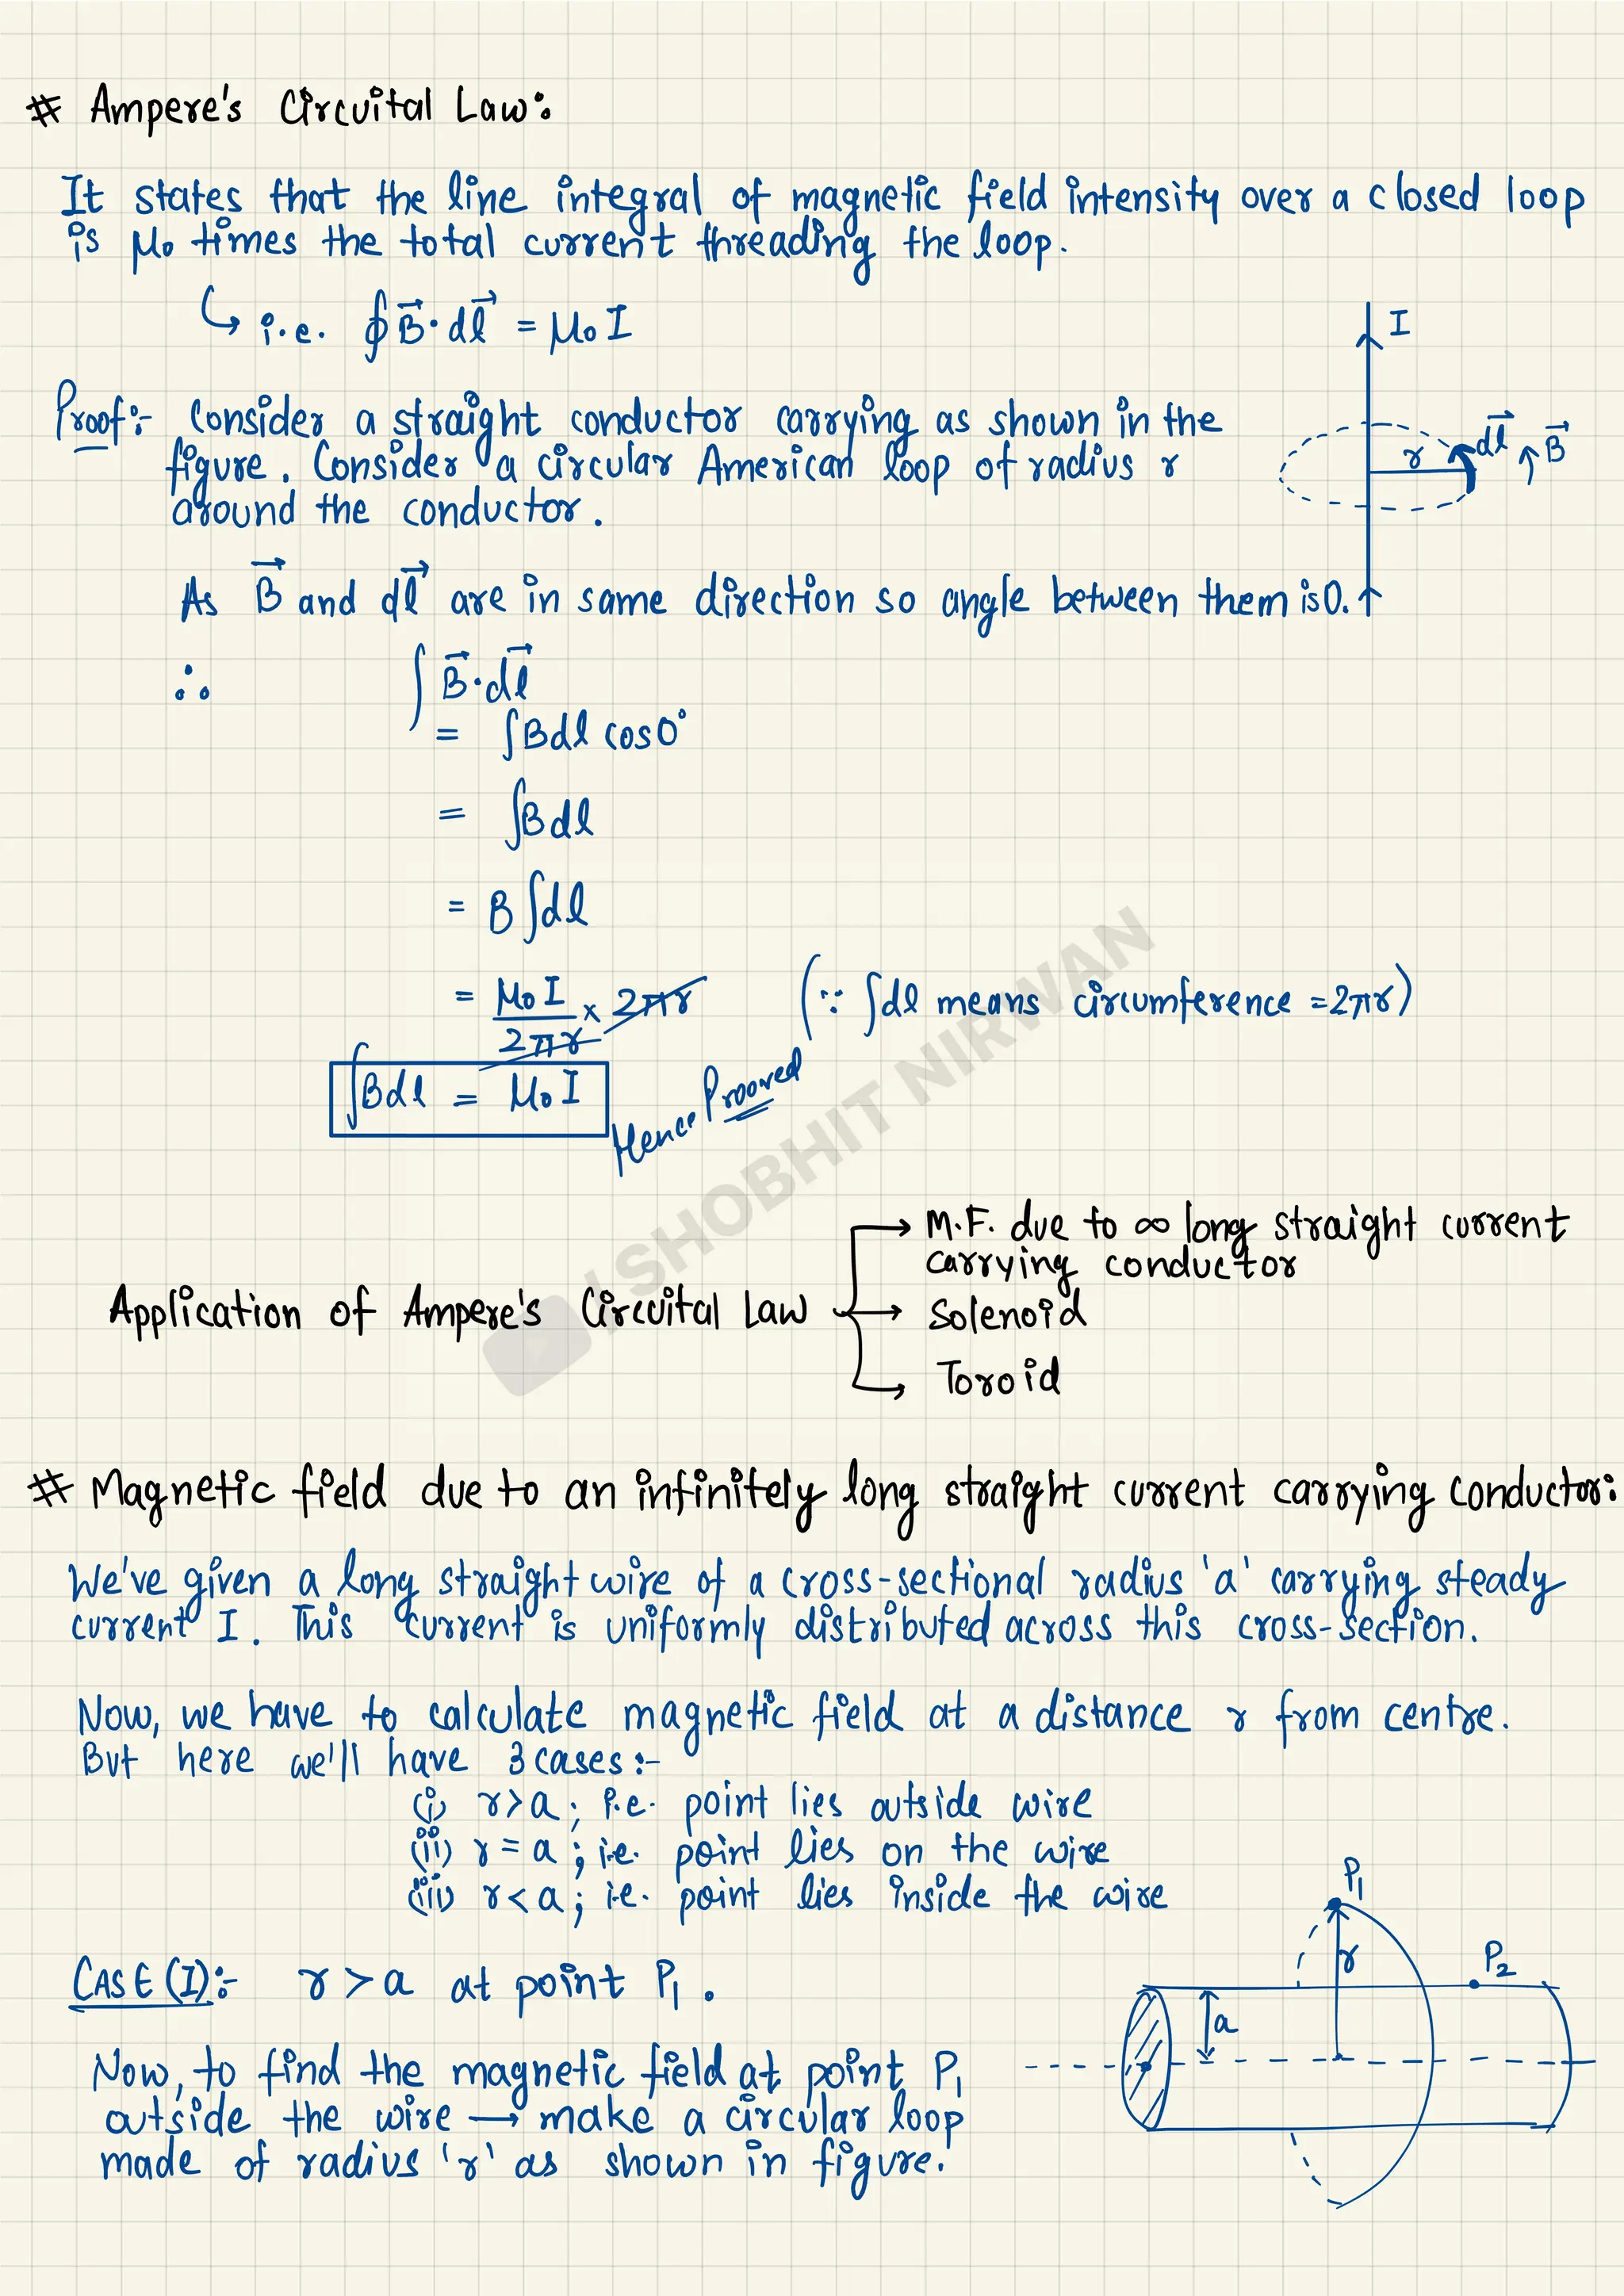 # Ampere's Circuital Law:
It states that the line integral of magnetic field intensity over a closed loop
is μ₀ times the total current threading the loop.
↳ i.e. ∮B⃗·dl⃗ = μ₀I
I
Proof:- Consider a straight conductor carrying as shown in the
figure. Consider a circular American loop of radius r
around the conductor.
r dl⃗ B⃗
As B⃗ and dl⃗ are in same direction so angle between them is 0.
∴ ∫B⃗·dl⃗
= ∫Bdl cos0°
= ∫Bdl
= B∫dl
= μ₀I/2πr × 2πr (∵ ∫dl means circumference = 2πr)
∫Bdl = μ₀I Hence Prooved
/ SHOBHIT NIRWAN
Application of Ampere's Circuital Law
→ M.F. due to ∞ long straight current
carrying conductor
→ Solenoid
→ Toroid
# Magnetic field due to an infinitely long straight current carrying conductor:
We've given a long straight wire of a cross-sectional radius 'a' carrying steady
current I. This current is uniformly distributed across this cross-section.
Now, we have to calculate magnetic field at a distance r from centre.
But here we'll have 3 cases:-
(i) r>a; i.e. point lies outside wire
(ii) r=a; i.e. point lies on the wire
(iii) r<a; i.e. point lies inside the wire
CASE(I):- r>a at point P₁.
Now, to find the magnetic field at point P₁
outside the wire → make a circular loop
made of radius 'r' as shown in figure.
P₁
r
P₂
a